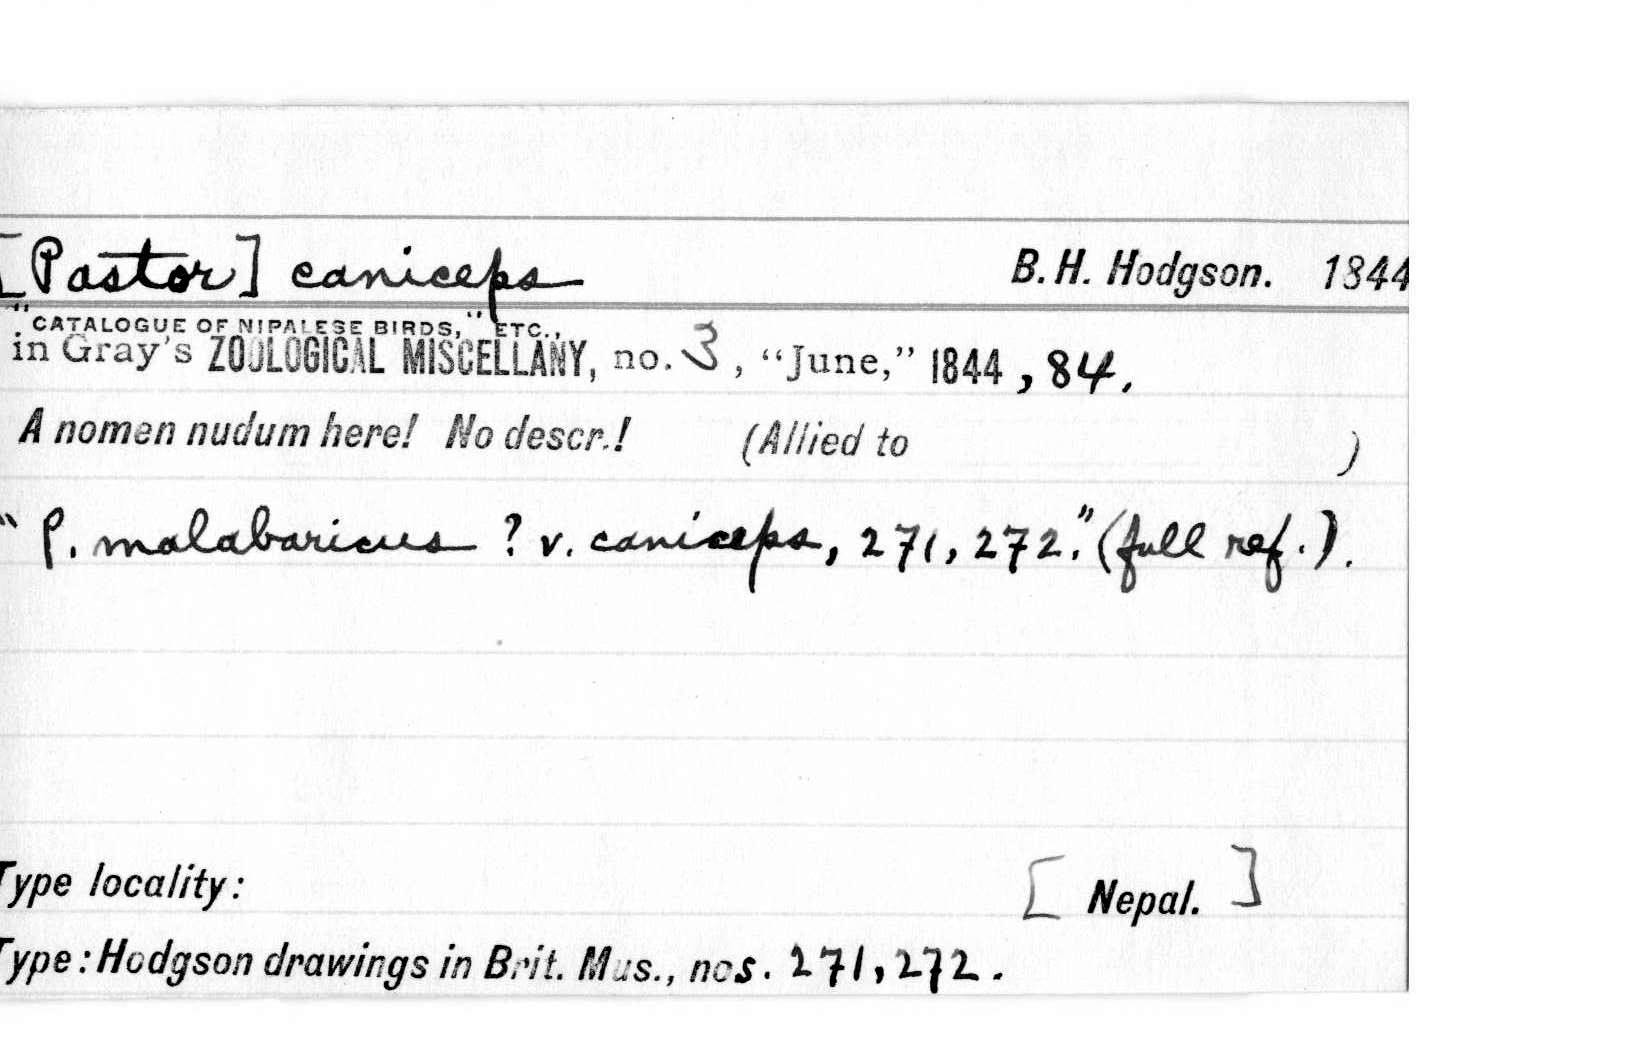 [Pastor] caniceps B. H. Hodgson. 1844
"CATALOGUE OF NIPALESE BIRDS," ETC.,
in Gray's ZOOLOGICAL MISCELLANY, no. 3, "June," 1844, 84.
A nomen nudum here! No descr.! (Allied to )
"P. malabaricus ? v. caniceps, 271, 272." (full ref.).
Type locality: [Nepal.]
Type: Hodgson drawings in Brit. Mus., nos. 271, 272.